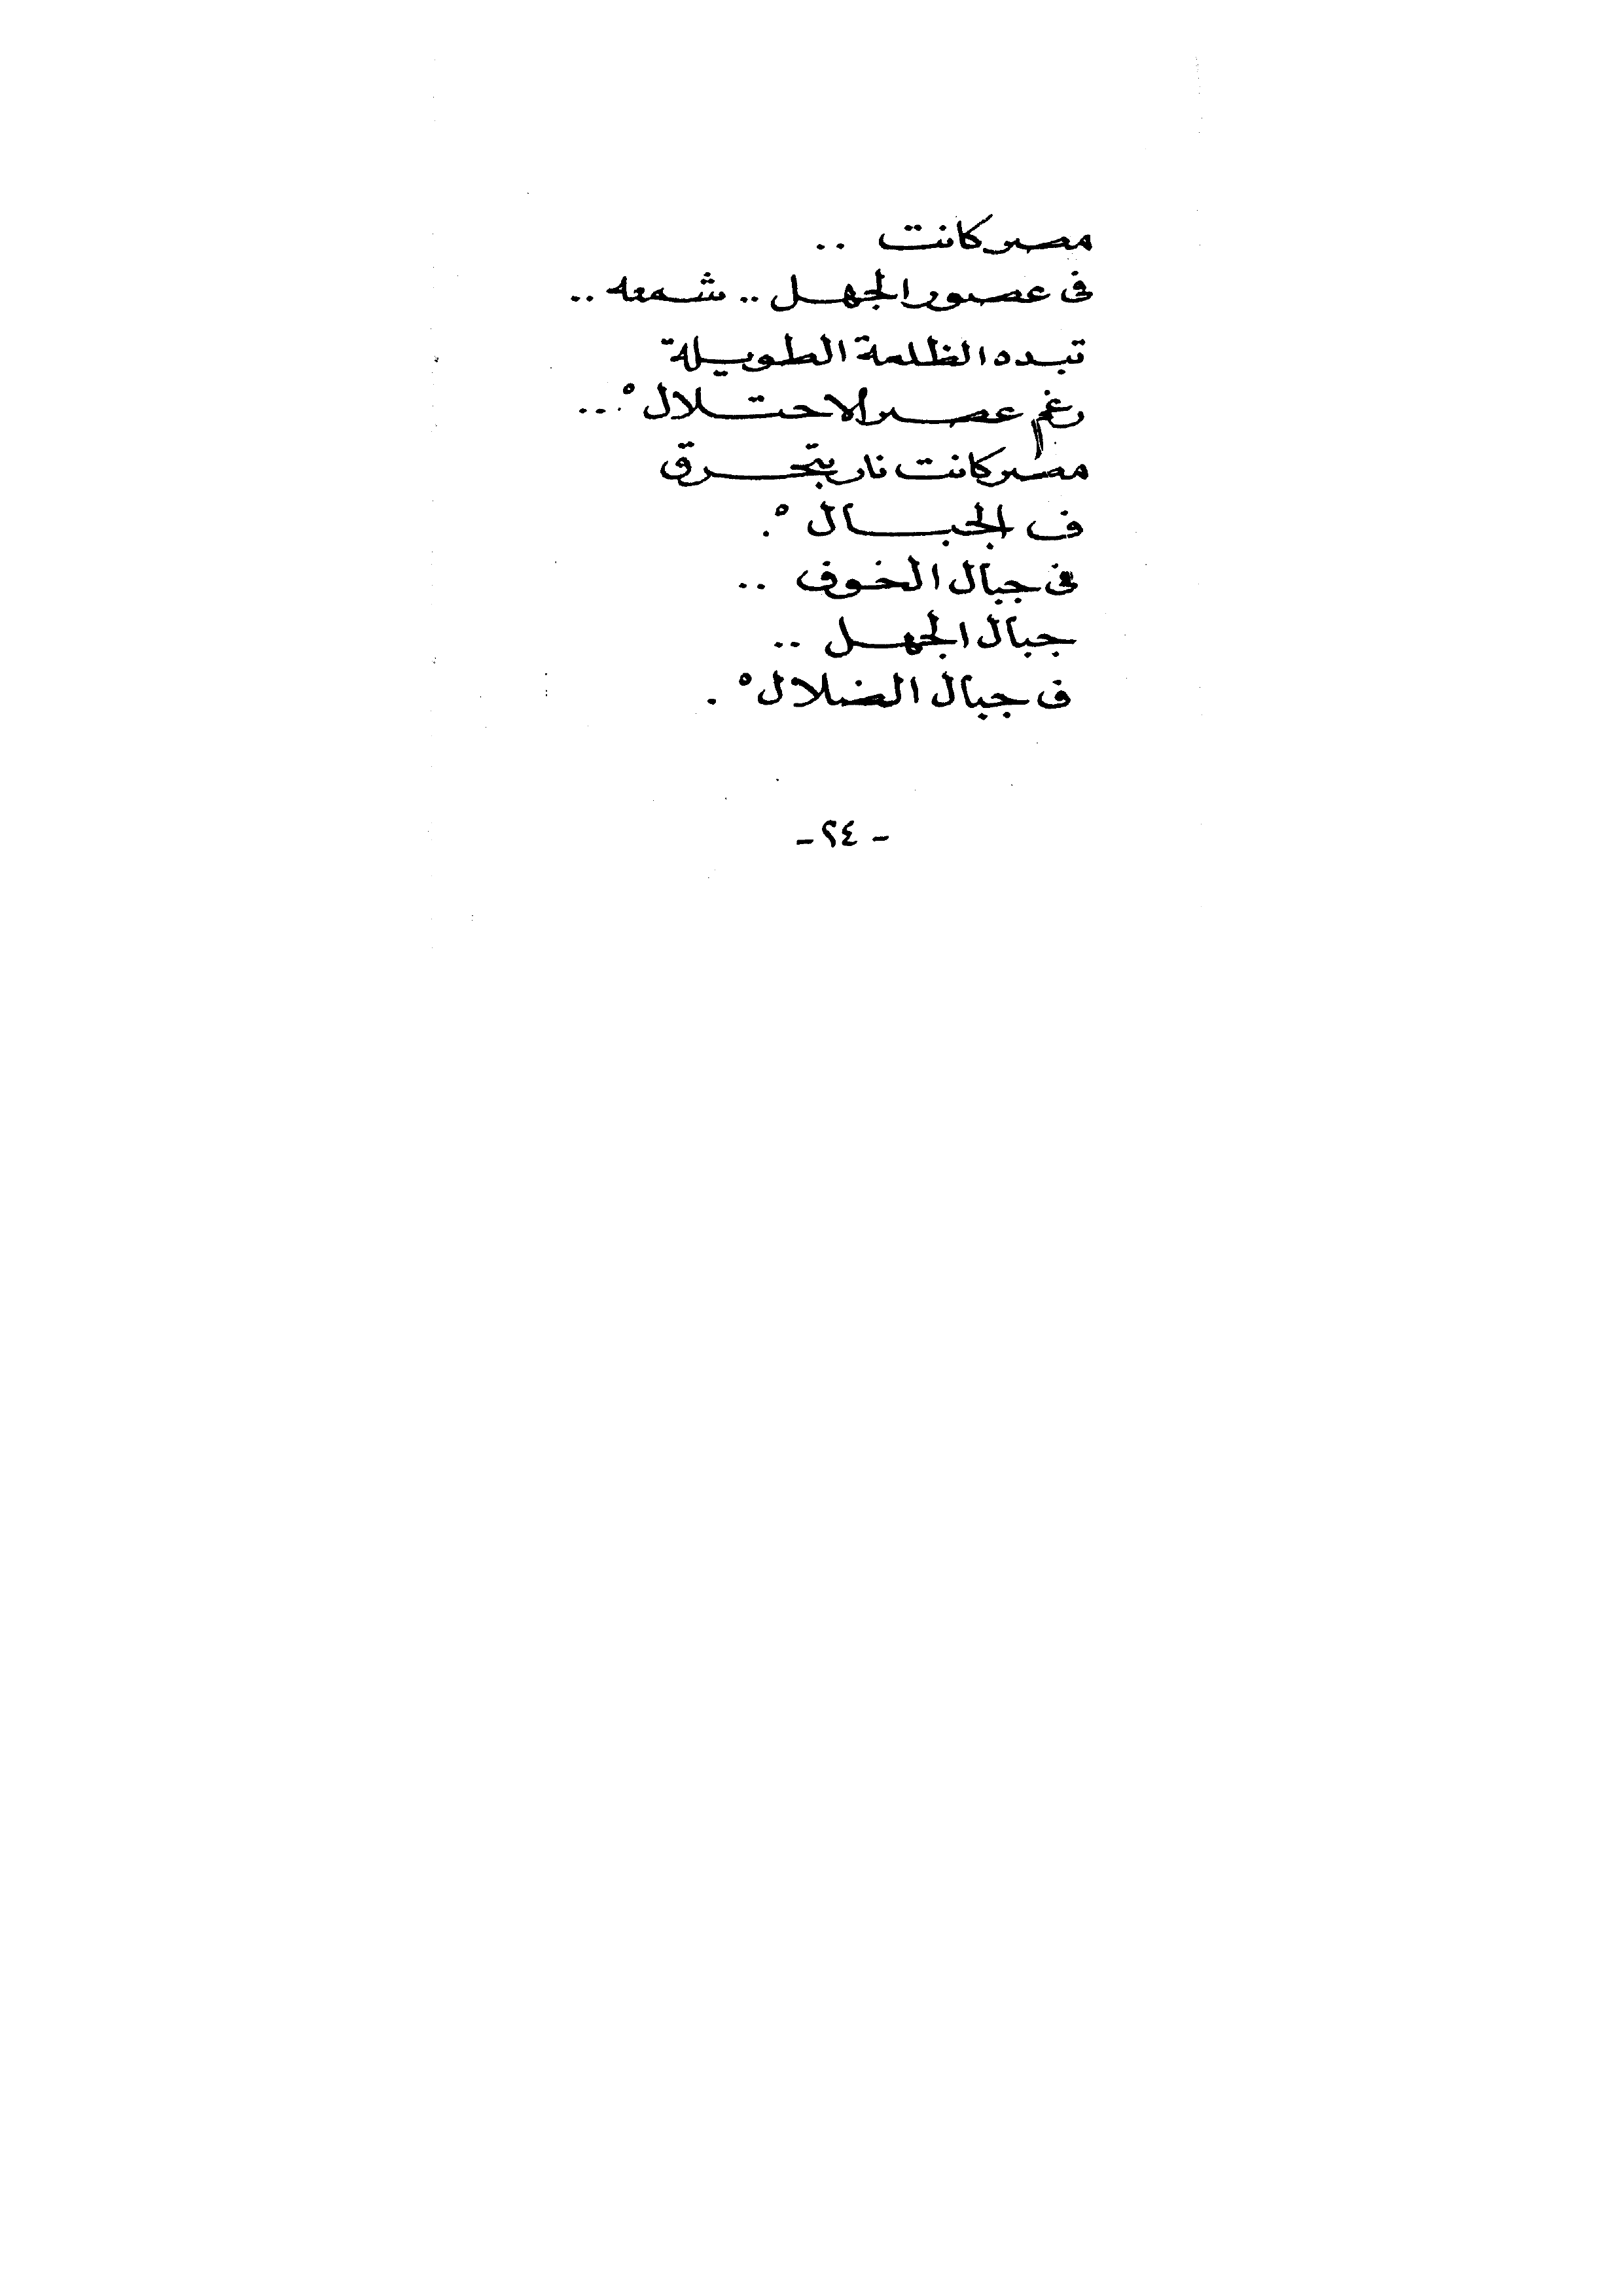 مصر كانت ..
فى عصور الجهل .. شمعه ..
تبده الظلمة الطويلة
رغم عصر الاحتلالْ ...
مصر كانت نار بتحرق
ف الجبالْ .
فى جبال الخوف ..
جبال الجهل ..
ف جبال الضلالْ .
- ٢٤ -